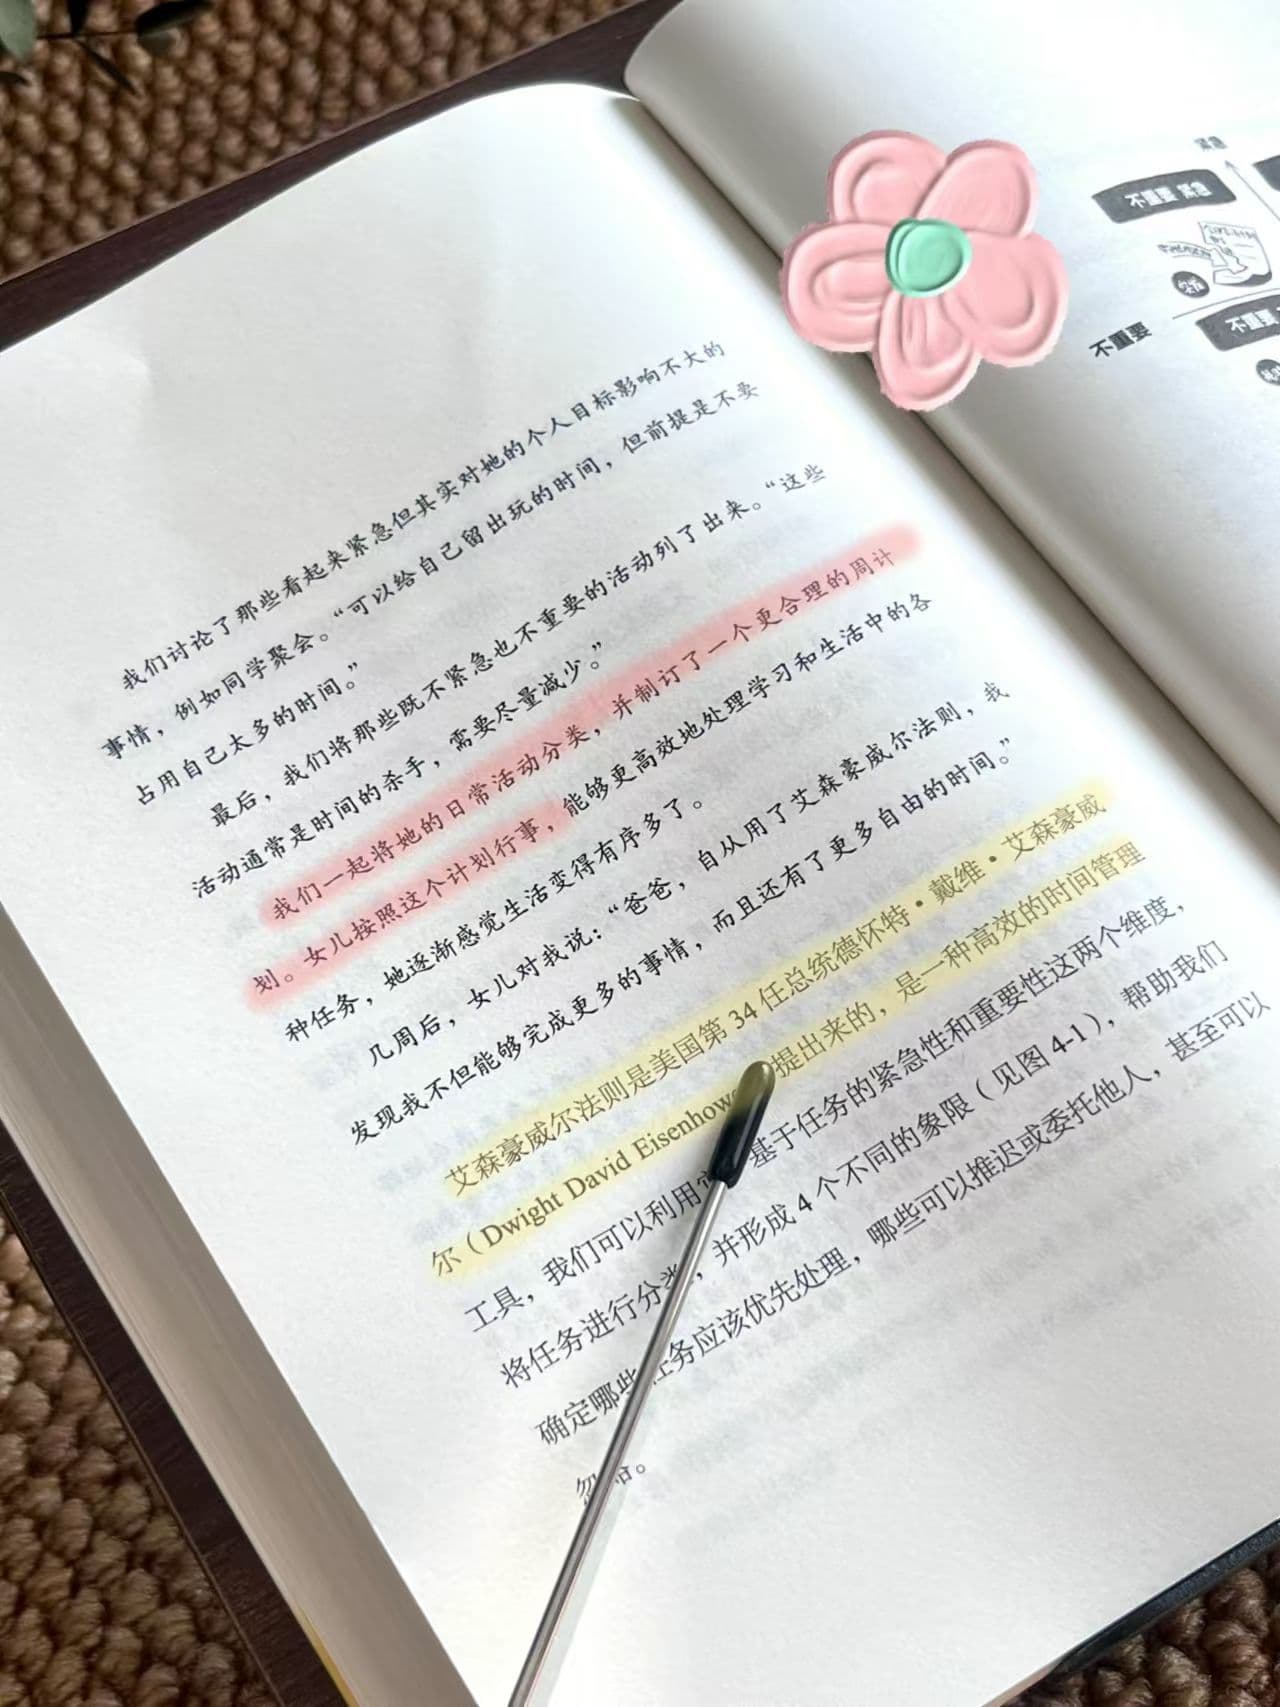 我们讨论了那些看起来紧急但其实对她的个人目标影响不大的
事情，例如同学聚会。“可以给自己留出玩的时间，但前提是不要
占用自己太多的时间。”
最后，我们将那些既不紧急也不重要的活动列了出来。“这些
活动通常是时间的杀手，需要尽量减少。”
我们一起将她的日常活动分类，并制订了一个更合理的周计
划。女儿按照这个计划行事，能够更高效地处理学习和生活中的各
种任务，她逐渐感觉生活变得有序多了。
几周后，女儿对我说：“爸爸，自从用了艾森豪威尔法则，我
发现我不但能够完成更多的事情，而且还有了更多自由的时间。”
艾森豪威尔法则是美国第 34 任总统德怀特·戴维·艾森豪威
尔（Dwight David Eisenhow 提出来的，是一种高效的时间管理
工具，我们可以利用 基于任务的紧急性和重要性这两个维度，
将任务进行分 ，并形成 4 个不同的象限（见图 4-1），帮助我们
确定哪些 务应该优先处理，哪些可以推迟或委托他人，甚至可以
。
紧急
不重要 紧急
不重要
不重要